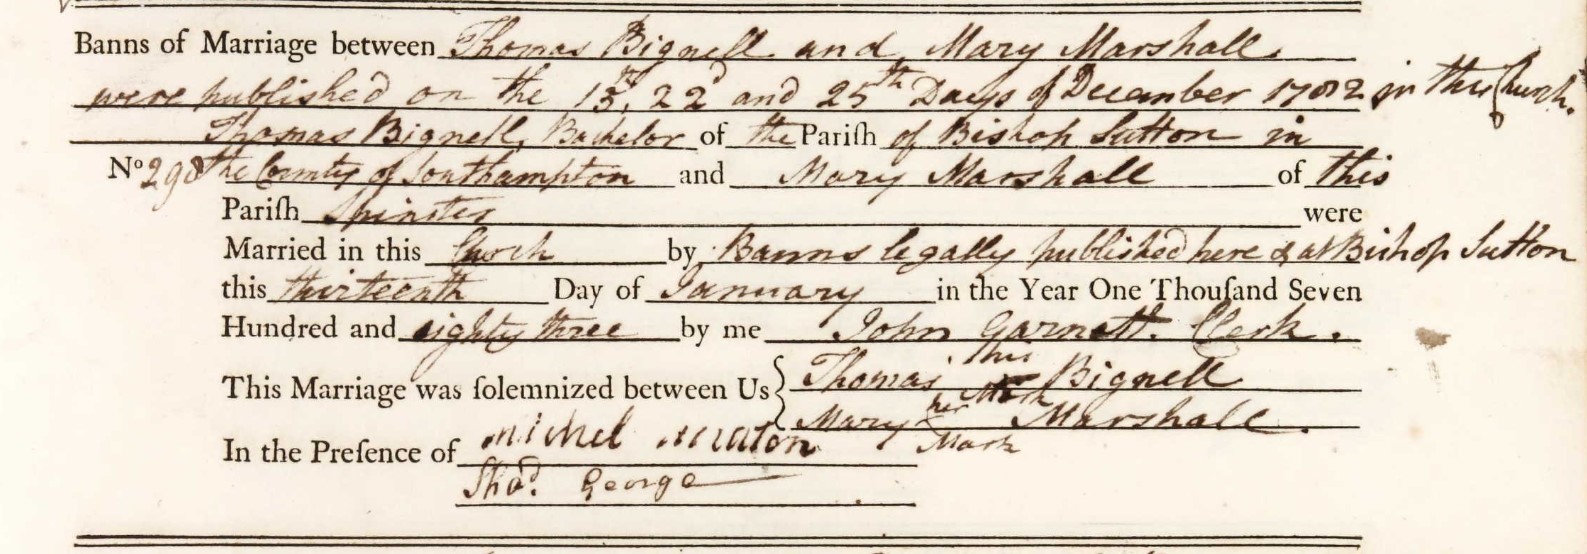 Banns of Marriage between Thomas Bignell and Mary Marshall
were published on the 15th, 22d and 25th Days of December 1782 in this Church.
Thomas Bignell, Bachelor of the Pariſh of Bishop Sutton in
No 298 the County of Southampton and Mary Marshall of this
Pariſh Spinster were
Married in this Church by Banns legally published here & at Bishop Sutton
this thirteenth Day of January in the Year One Thouſand Seven
Hundred and eighty three by me John Garnett. Clerk.
This Marriage was ſolemnized between Us Thomas his Mark Bignell
Mary her Mark Marshall.
In the Preſence of Michel
Thos. George